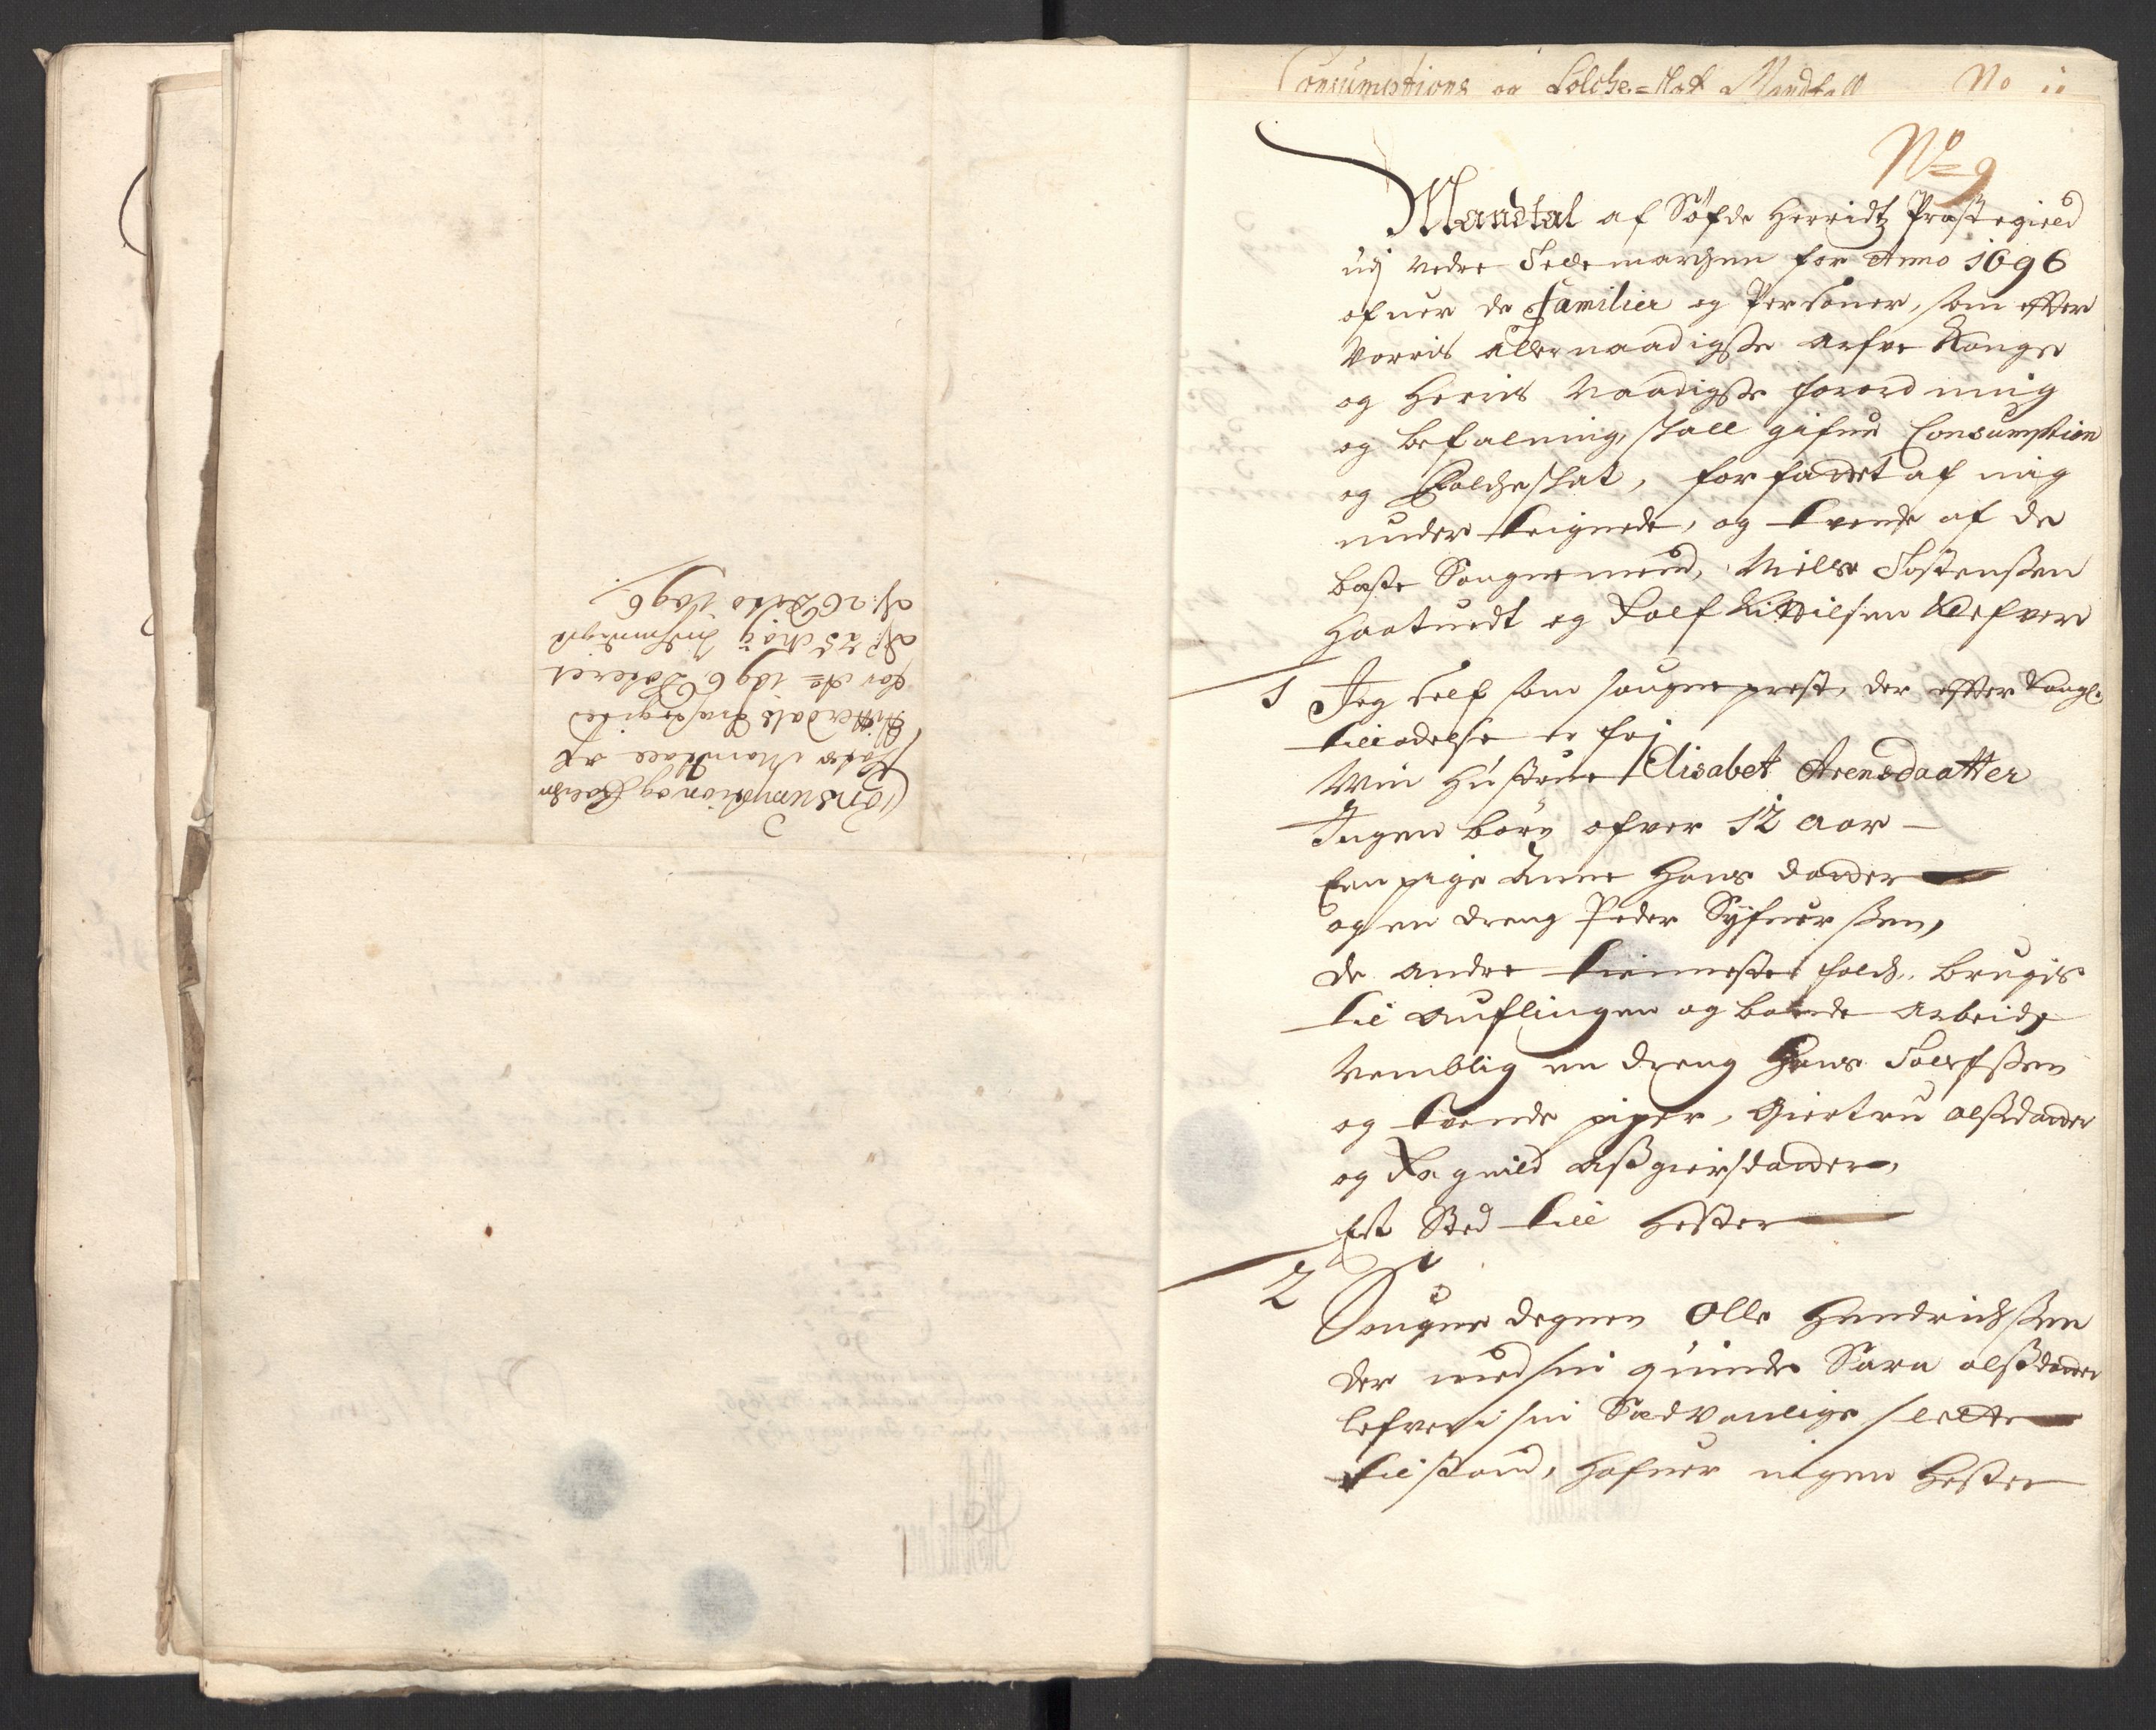 Consumptions og Folche-Skat Mandtall No 11
No 9
Mandtal af Söfde Herridtz Præstegield
udj nedre Tellemarchen for Anno 1696
ofuer de Familier og Personer, som efter
Vorris allernaadigste arfve Konge
og Herris Naadigste forordning
og befalning, skall gifue Consumption
og Folcheskat, forfattet af mig
underteignede, og tvende af de
beste Sougnemend, Niels Tostensen
Haatuedt og Rolf Kittilsen Klefver
1 Jeg self som sougneprest, der efter Kongl:
tilladelse er frj
Min Hustrue Elisabet Arensdaatter
Ingen börn ofver 12 aar
Een pige Anne Hans daatter
og en dreng Peder Syfuersen,
de andre tienneste folch brugis
til auflingen og bonde arbeide
Nemblig en dreng Hans Tollefsen
og tvende piger, Giertru olsdaatter
og Ragnild Asgiersdaatter,
Est Sted till Hester
2 Sougne degnen Olle Hendrichsen
der med sin quinde Sara olsdaatter
lefver i sin Sædvanlige slette
tilstand, hafuer ingen Hester
Consumption og Folche
Skatts Mandtall af
Hitterdals Præstegield
for Ao 1696. Dateret
d: 25 Maj indsendiget
d: 26 Dito 1696